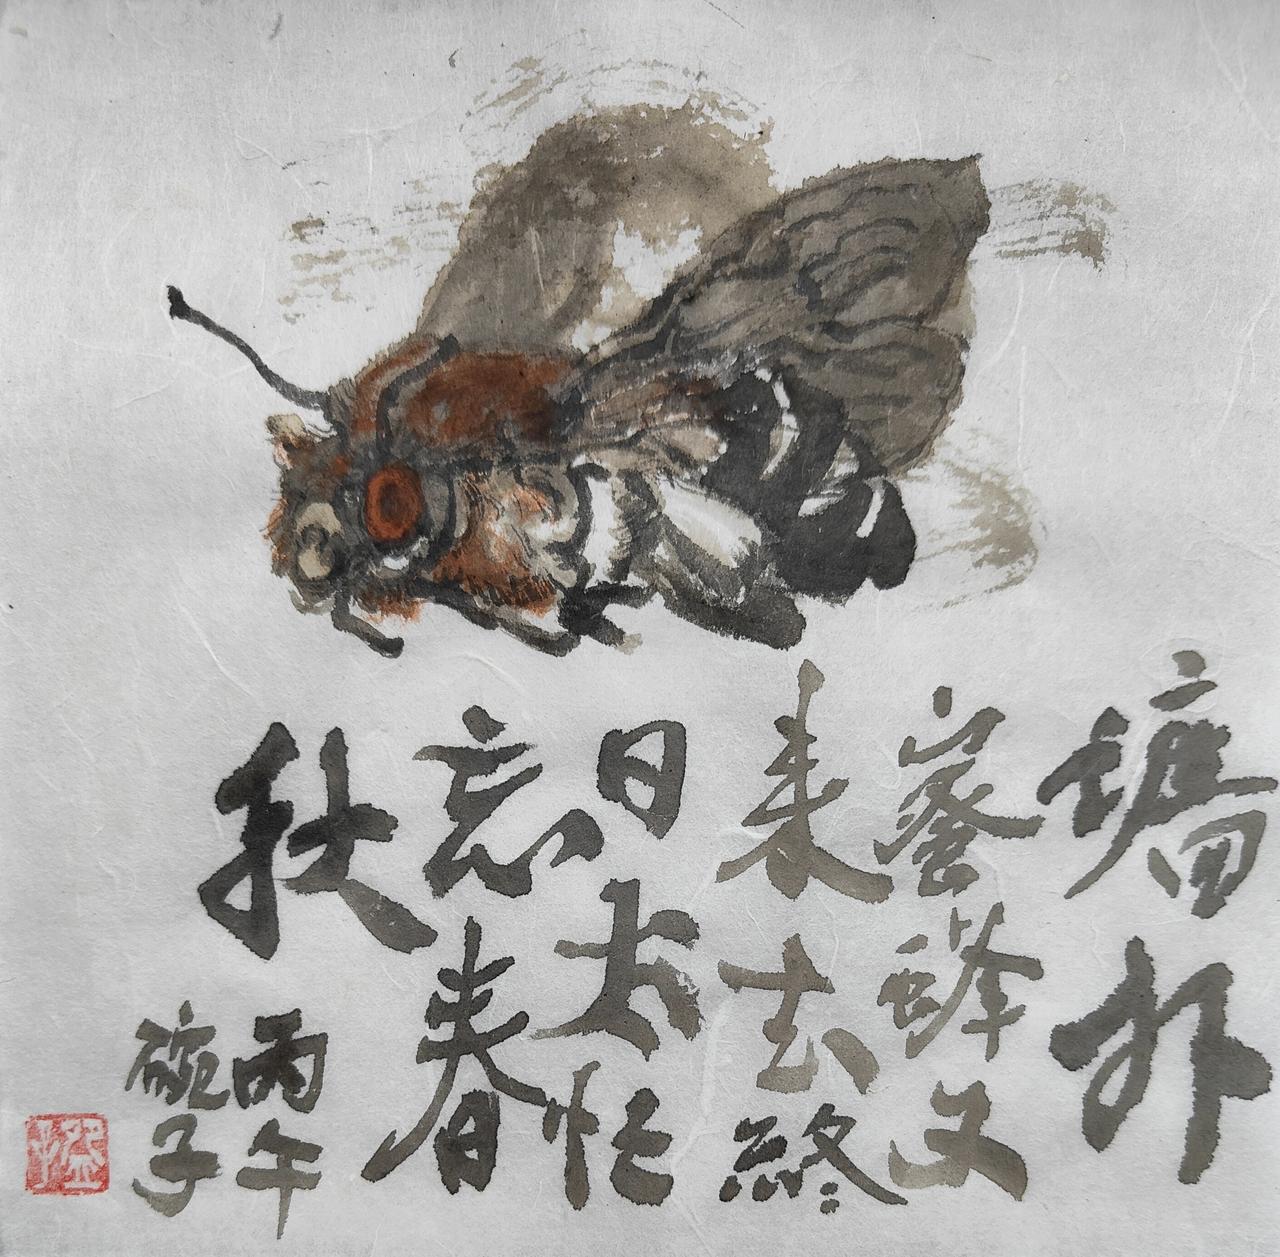 墙外
蜜蜂又
来去終
日太忙
忘春
秋
丙午
碗子